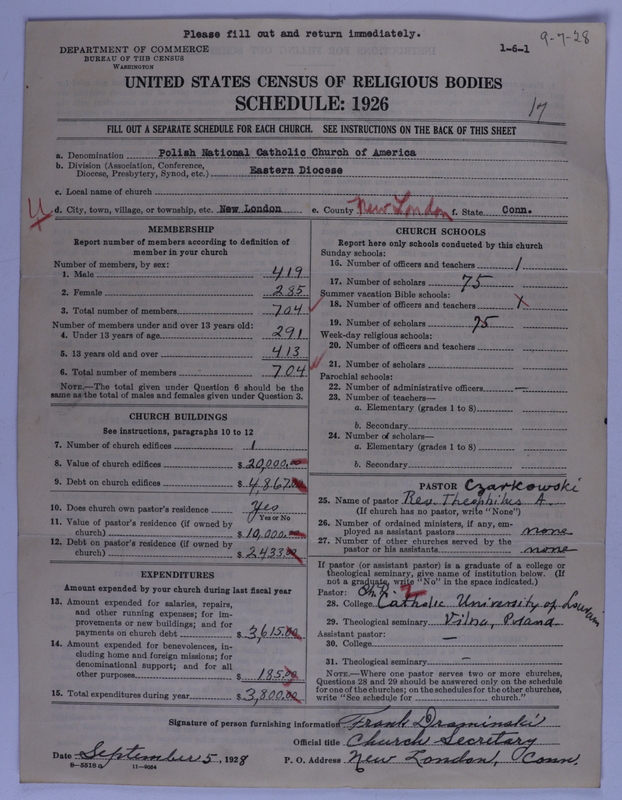 Please fill out and return immediately.
9-7-28
DEPARTMENT OF COMMERCE
BUREAU OF THE CENSUS
WASHINGTON
1-6-1
UNITED STATES CENSUS OF RELIGIOUS BODIES
SCHEDULE: 1926
17
FILL OUT A SEPARATE SCHEDULE FOR EACH CHURCH. SEE INSTRUCTIONS ON THE BACK OF THIS SHEET
a. Denomination Polish National Catholic Church of America
b. Division (Association, Conference,
Diocese, Presbytery, Synod, etc.) Eastern Diocese
c. Local name of church
d. City, town, village, or township, etc. New London e. County New London f. State Conn.
MEMBERSHIP
Report number of members according to definition of
member in your church
Number of members, by sex:
1. Male 419
2. Female 285
3. Total number of members 704
Number of members under and over 13 years old:
4. Under 13 years of age 291
5. 13 years old and over 413
6. Total number of members 704
NOTE.—The total given under Question 6 should be the
same as the total of males and females given under Question 3.
CHURCH BUILDINGS
See instructions, paragraphs 10 to 12
7. Number of church edifices 1
8. Value of church edifices $ 20,000.00
9. Debt on church edifices $ 4,867.00
10. Does church own pastor's residence? Yes
Yes or No
11. Value of pastor's residence (if owned by
church) $ 10,000.00
12. Debt on pastor's residence (if owned by
church) $ 2433.00
EXPENDITURES
Amount expended by your church during last fiscal year
13. Amount expended for salaries, repairs,
and other running expenses; for im-
provements or new buildings; and for
payments on church debt $ 3,615.00
14. Amount expended for benevolences, in-
cluding home and foreign missions; for
denominational support; and for all
other purposes $ 185.00
15. Total expenditures during year $ 3,800.00
CHURCH SCHOOLS
Report here only schools conducted by this church
Sunday schools:
16. Number of officers and teachers 1
17. Number of scholars 75
Summer vacation Bible schools:
18. Number of officers and teachers 1
19. Number of scholars 75
Week-day religious schools:
20. Number of officers and teachers
21. Number of scholars
Parochial schools:
22. Number of administrative officers —
23. Number of teachers—
a. Elementary (grades 1 to 8)
b. Secondary
24. Number of scholars—
a. Elementary (grades 1 to 8)
b. Secondary
PASTOR Czarkowski
25. Name of pastor Rev. Theophilus A.
(If church has no pastor, write "None")
26. Number of ordained ministers, if any, em-
ployed as assistant pastors none
27. Number of other churches served by the
pastor or his assistants none
If pastor (or assistant pastor) is a graduate of a college or
theological seminary, give name of institution below. (If
not a graduate, write "No" in the space indicated.)
Pastor: 2
28. College Catholic University of Louvain
29. Theological seminary Vilna, Poland
Assistant pastor:
30. College —
31. Theological seminary —
NOTE.—Where one pastor serves two or more churches,
Questions 28 and 29 should be answered only on the schedule
for one of the churches; on the schedules for the other churches,
write "See schedule for church."
Signature of person furnishing information Frank Draminski
Official title Church Secretary
Date September 5, 1928 P. O. Address New London, Conn.
8-5518a 11-9064